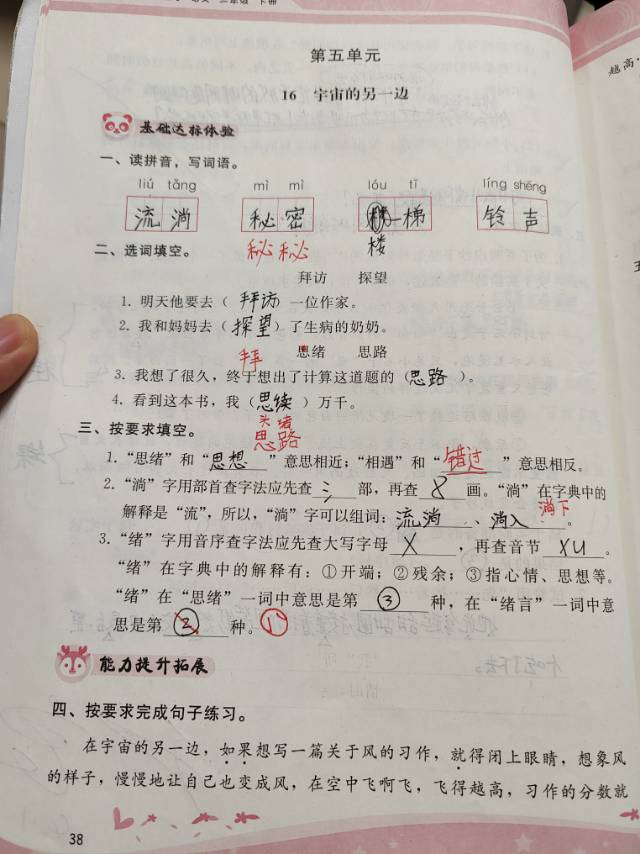 语文 三年级 下册
第五单元
16 宇宙的另一边
基础达标体验
一、读拼音，写词语。
liú tǎng mì mì lóu tī líng shēng
流淌 秘密 梯 铃声
秘秘 楼
二、选词填空。
拜访 探望
1. 明天他要去（拜访）一位作家。
2. 我和妈妈去（探望）了生病的奶奶。
拜
思绪 思路
3. 我想了很久，终于想出了计算这道题的（思路）。
4. 看到这本书，我（思续）万千。
头绪
三、按要求填空。
思路
1. “思绪”和“思想”意思相近；“相遇”和“错过”意思相反。
2. “淌”字用部首查字法应先查氵部，再查8画。“淌”在字典中的
淌下
解释是“流”，所以，“淌”字可以组词：流淌、淌入。
3. “绪”字用音序查字法应先查大写字母X，再查音节XU。
“绪”在字典中的解释有：①开端；②残余；③指心情、思想等。
“绪”在“思绪”一词中意思是第③种，在“绪言”一词中意
思是第②种。①
能力提升拓展
四、按要求完成句子练习。
在宇宙的另一边，如果想写一篇关于风的习作，就得闭上眼睛，想象风
的样子，慢慢地让自己也变成风，在空中飞啊飞，飞得越高，习作的分数就
38
越高·